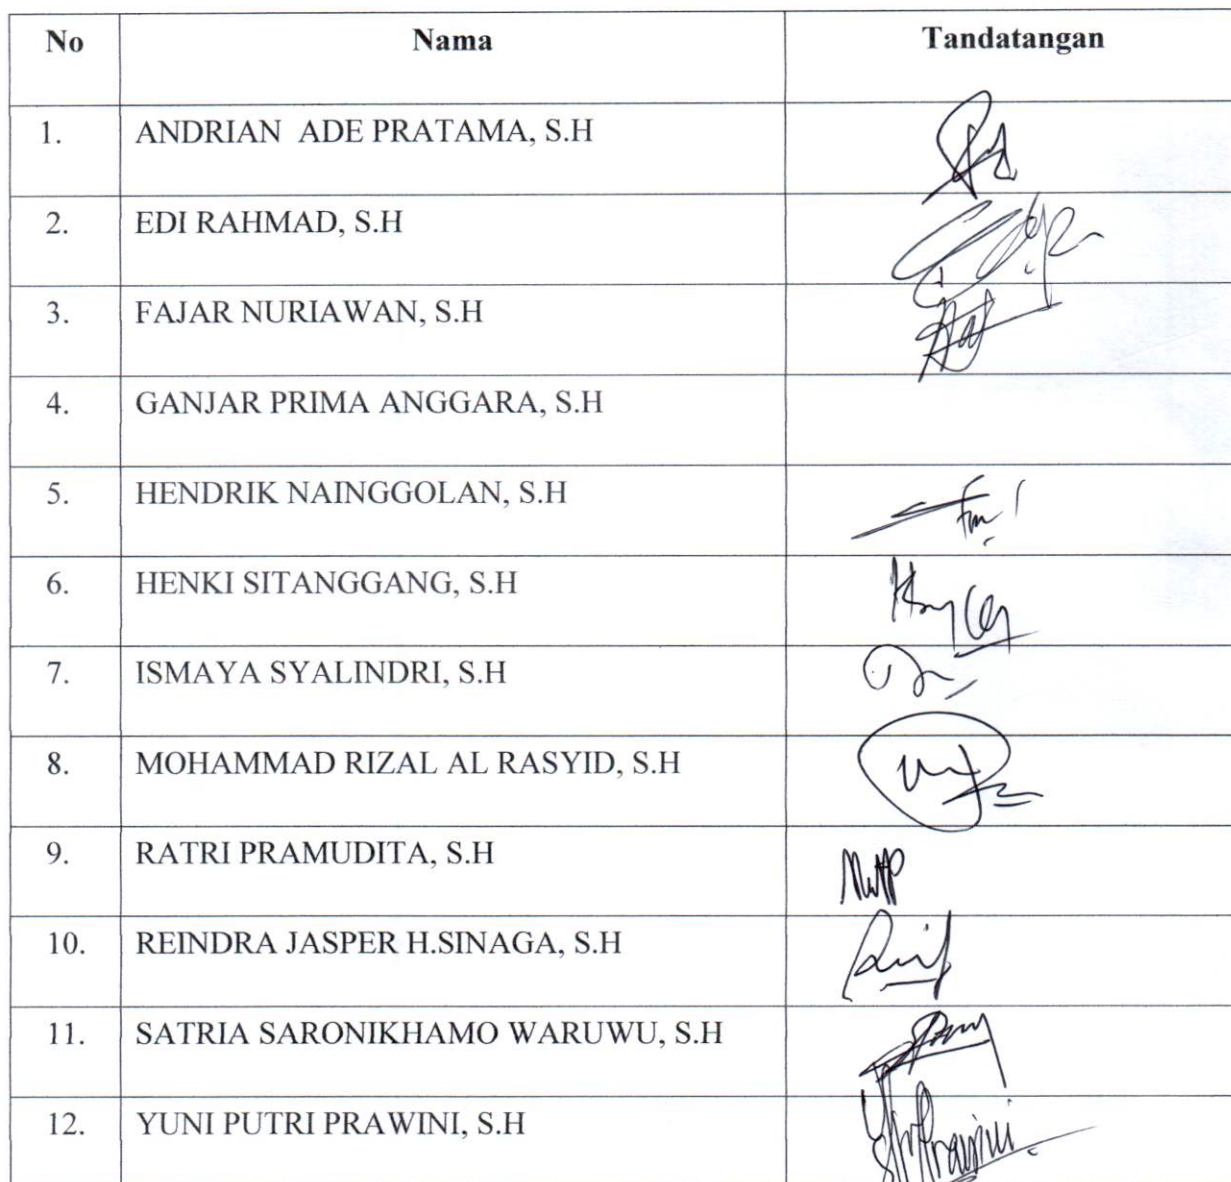 No Nama Tandatangan
1. ANDRIAN ADE PRATAMA, S.H
2. EDI RAHMAD, S.H
3. FAJAR NURIAWAN, S.H
4. GANJAR PRIMA ANGGARA, S.H
5. HENDRIK NAINGGOLAN, S.H
6. HENKI SITANGGANG, S.H
7. ISMAYA SYALINDRI, S.H
8. MOHAMMAD RIZAL AL RASYID, S.H
9. RATRI PRAMUDITA, S.H
10. REINDRA JASPER H.SINAGA, S.H
11. SATRIA SARONIKHAMO WARUWU, S.H
12. YUNI PUTRI PRAWINI, S.H